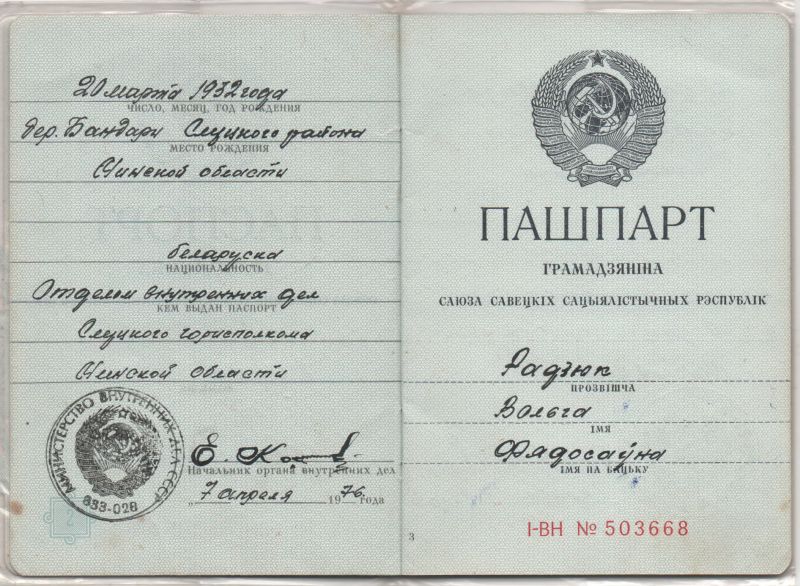 20 марта 1932 года
ЧИСЛО, МЕСЯЦ, ГОД РОЖДЕНИЯ
дер. Бандари Слуцкого района
МЕСТО РОЖДЕНИЯ
Минской области
беларуска
НАЦИОНАЛЬНОСТЬ
Отделом внутренних дел
КЕМ ВЫДАН ПАСПОРТ
Слуцкого горисполкома
Минской области
МИНИСТЕРСТВО ВНУТРЕННИХ ДЕЛ СССР
633-028
Начальник органа внутренних дел
„7 апреля 1976 года
ПАШПАРТ
ГРАМАДЗЯНІНА
САЮЗА САВЕЦКІХ САЦЫЯЛІСТЫЧНЫХ РЭСПУБЛІК
Радзюк
ПРОЗВІШЧА
Вольга
ІМЯ
Фядосаўна
ІМЯ ПА БАЦЬКУ
3
I-ВН № 503668